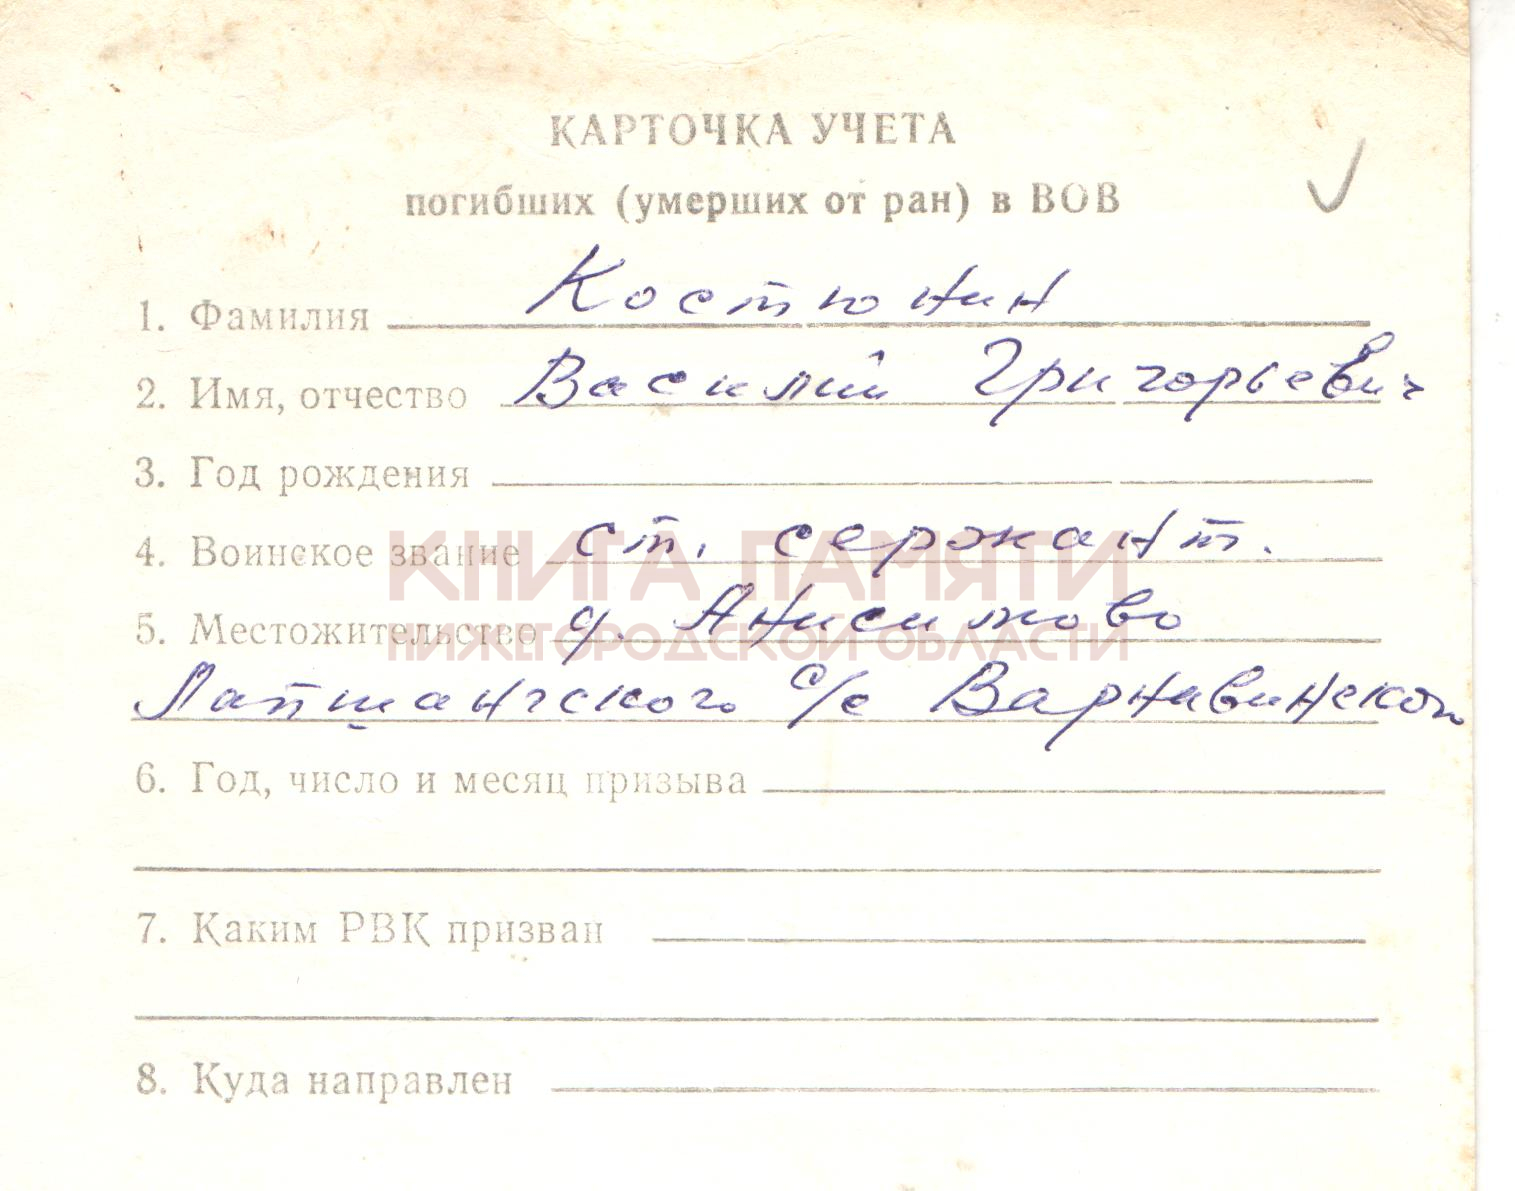 КАРТОЧКА УЧЕТА
погибших (умерших от ран) в ВОВ
1. Фамилия Костюнин
2. Имя, отчество Василий Григорьевич
3. Год рождения
4. Воинское звание ст. сержант.
КНИГА ПАМЯТИ
5. Местожительство д. Анисимово
НИЖЕГОРОДСКОЙ ОБЛАСТИ
Лапшангского с/с Варнавинского
6. Год, число и месяц призыва
7. Каким РВК призван
8. Куда направлен